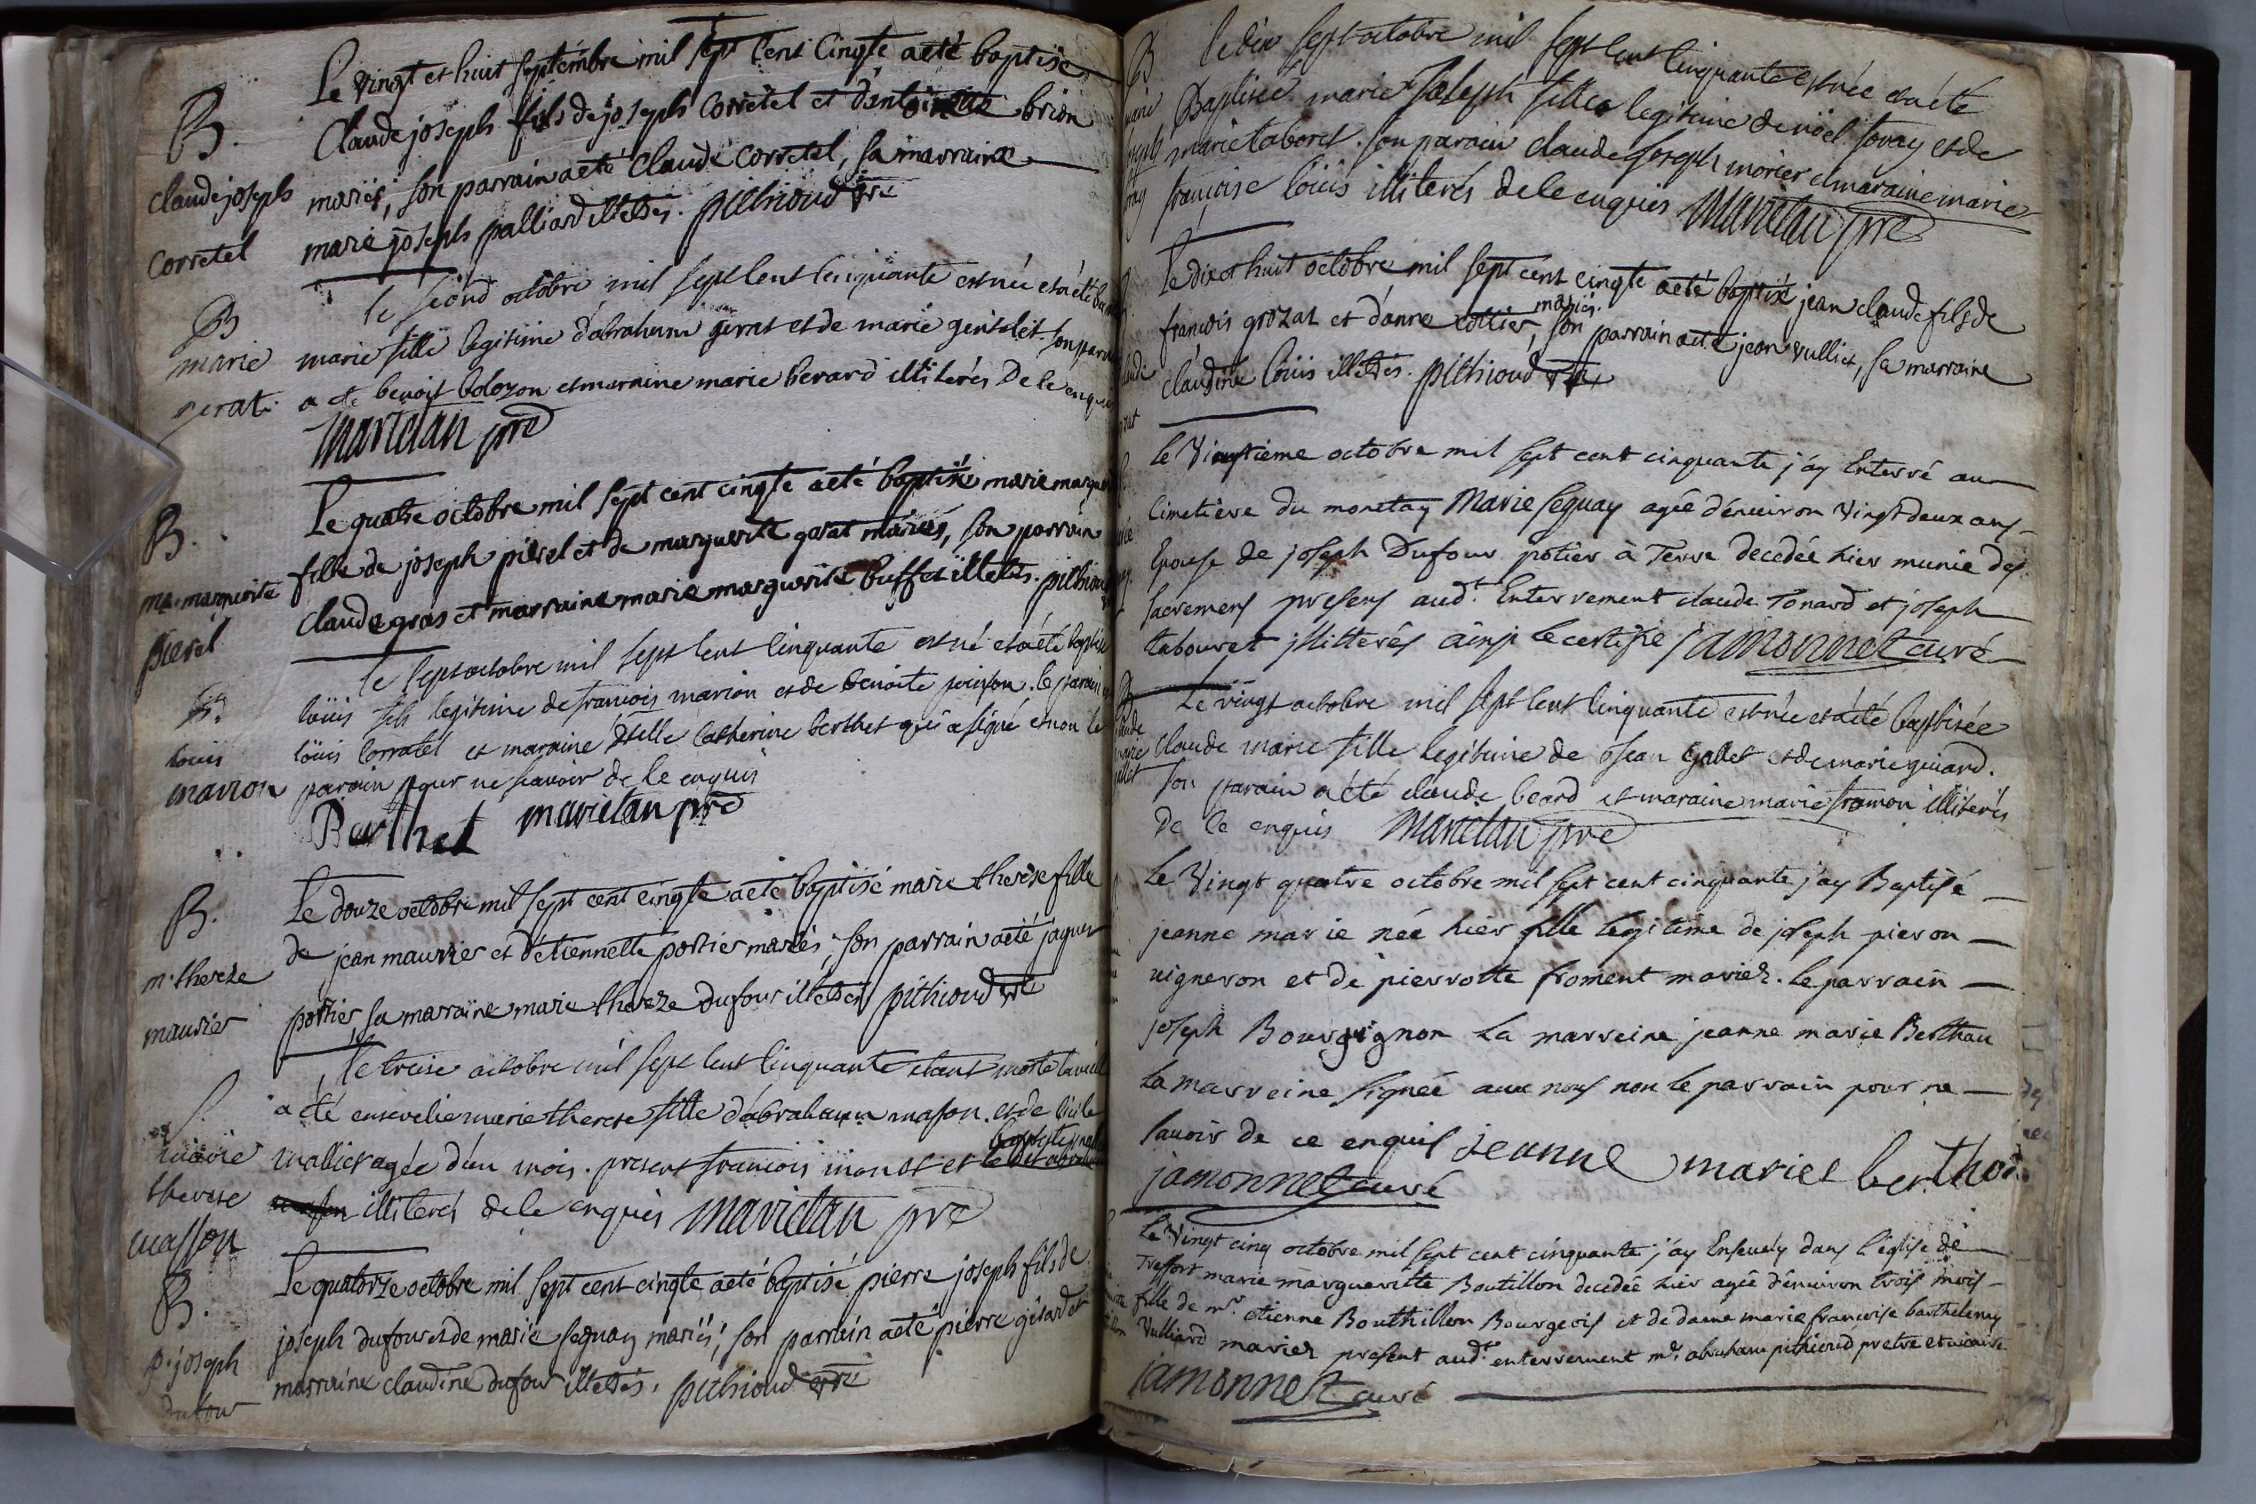 B.
claude joseph
corretel
Le vingt et huit septembre mil sept cent cinqte a eté baptise
Claude joseph fils de joseph corretel et d'antoinette brion
mariés, son parrain a eté claude corretel, sa marraine
marie joseph palliard illetrés. pithioud ptre
B
marie
gerat
le second octobre mil sept cent cinquante est née et a été
marie fille legitime d'abraham gerat et de marie gentelet. son
a ete benoit bolozon et maraine marie berard illiterés De ce enquis
marietan pre
B.
me. marguerite
pierel
Le quatre octobre mil sept cent cinqte a eté baptisé marie
fille de joseph pierel et de marguerite gerat mariés, son parrain
claude gros et marraine marie marguerite buffet illetrés. pithioud
louis
marion
le sept octobre mil sept cent cinquante est né et a eté baptisé
louis fils legitime de francois marion et de benoite poinson. le parain
louis Corratel et maraine dlle Catherine berthet qui a signé et non le
parain pour ne scavoir de ce enquis
Berthet marietan pre
B.
m. thereze
maurier
Le douze octobre mil sept cent cinqte a eté baptisé marie therese fille
de jean maurier et d'etiennette portier mariés, son parrain a eté jaques
portier, sa marraine marie thereze dufour illetrés pithioud ptre
S.
marie
therese
masson
le treise octobre mil sept cent cinquante etant morte la veille
a été ensevelie marie therese fille d'abraham mason et de
mallier agée d'un mois. present francois monet et
illiterés de ce enquis marietan pre
B.
p. joseph
dufour
Le quatorze octobre mil sept cent cinqte a eté baptisé pierre joseph fils de
joseph dufour et de marie sequay mariés, son parrain a eté pierre girardet
marraine claudine dufour illetrés. pithioud ptre
B
le dix sept octobre mil sept cent cinquante est née et a été
Baptisée marie Joseph fille legitime de noël foray et de
marie taboret. son parain claude Joseph morier et maraine marie
francoise louis illiterés de ce enquis marietan pre
Le dix et huit octobre mil sept cent cinqte a eté baptisé jean claude fils de
françois grozat et d'anne cottier, mariés. son parrain a eté jean vulliet, sa marraine
claudine louis illetrés. pithioud ptre
Le Vingtieme octobre mil sept cent cinquante j'ay Enterré au
Cimetiere du monetay Marie Sequay agée d'environ vingt deux ans
Epouse de joseph Dufour potier à Terre decedée hier munie des
sacremens presens audt. Enterrement claude Tonard et joseph
tabouret jllitterés ainsi le certifie jamonnet curé
B
Le vingt octobre mil sept cent cinquante est née et a été baptisée
claude marie fille legitime de Jean Gallet et de marie guiard.
son parain a été claude beard et maraine marie framon illiterés
De ce enquis Marietan pre
Le Vingt quatre octobre mil sept cent cinquante j'ay Baptisé
jeanne marie née hier fille legitime de joseph pieron
vigneron et de pierrotte froment mariez. le parrain
joseph Bourguignon La marreine jeanne marie Berthau
La marreine signeé avec nous non le parrain pour ne
savoir de ce enquis jeanne marie berthod
jamonnet curé
Le Vingt cinq octobre mil sept cent cinquante j'ay Ensevely dans l'eglise de
Treffort marie margueritte Boutillon decedeé hier agée d'environ trois mois
fille de mr. etienne Bouthillon Bourgeois et de dame marie francoise barthelemy
Vulliard mariez present audt. enterrement mr. abraham pithioud pretre et vicaire
jamonnet curé